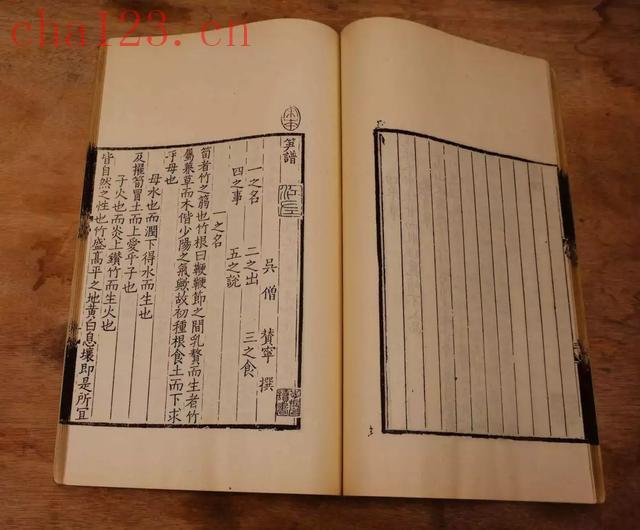 cha123.cn
宋本
笋譜
吳僧 賛寧 撰
一之名 二之出 三之食
四之事 五之說
一之名
筍者竹之筋也竹根曰鞭鞭節之間乳贅而生者竹
屬蘽草而木偕少陽之氣歟故初種根食土而下求
乎母也
母水也而潤下得水而生也
及擢筍冒土而上愛乎子也
子火也而炎上鑽竹而生火也
皆自然之性也竹盛高平之地黄白息壤即是所宜